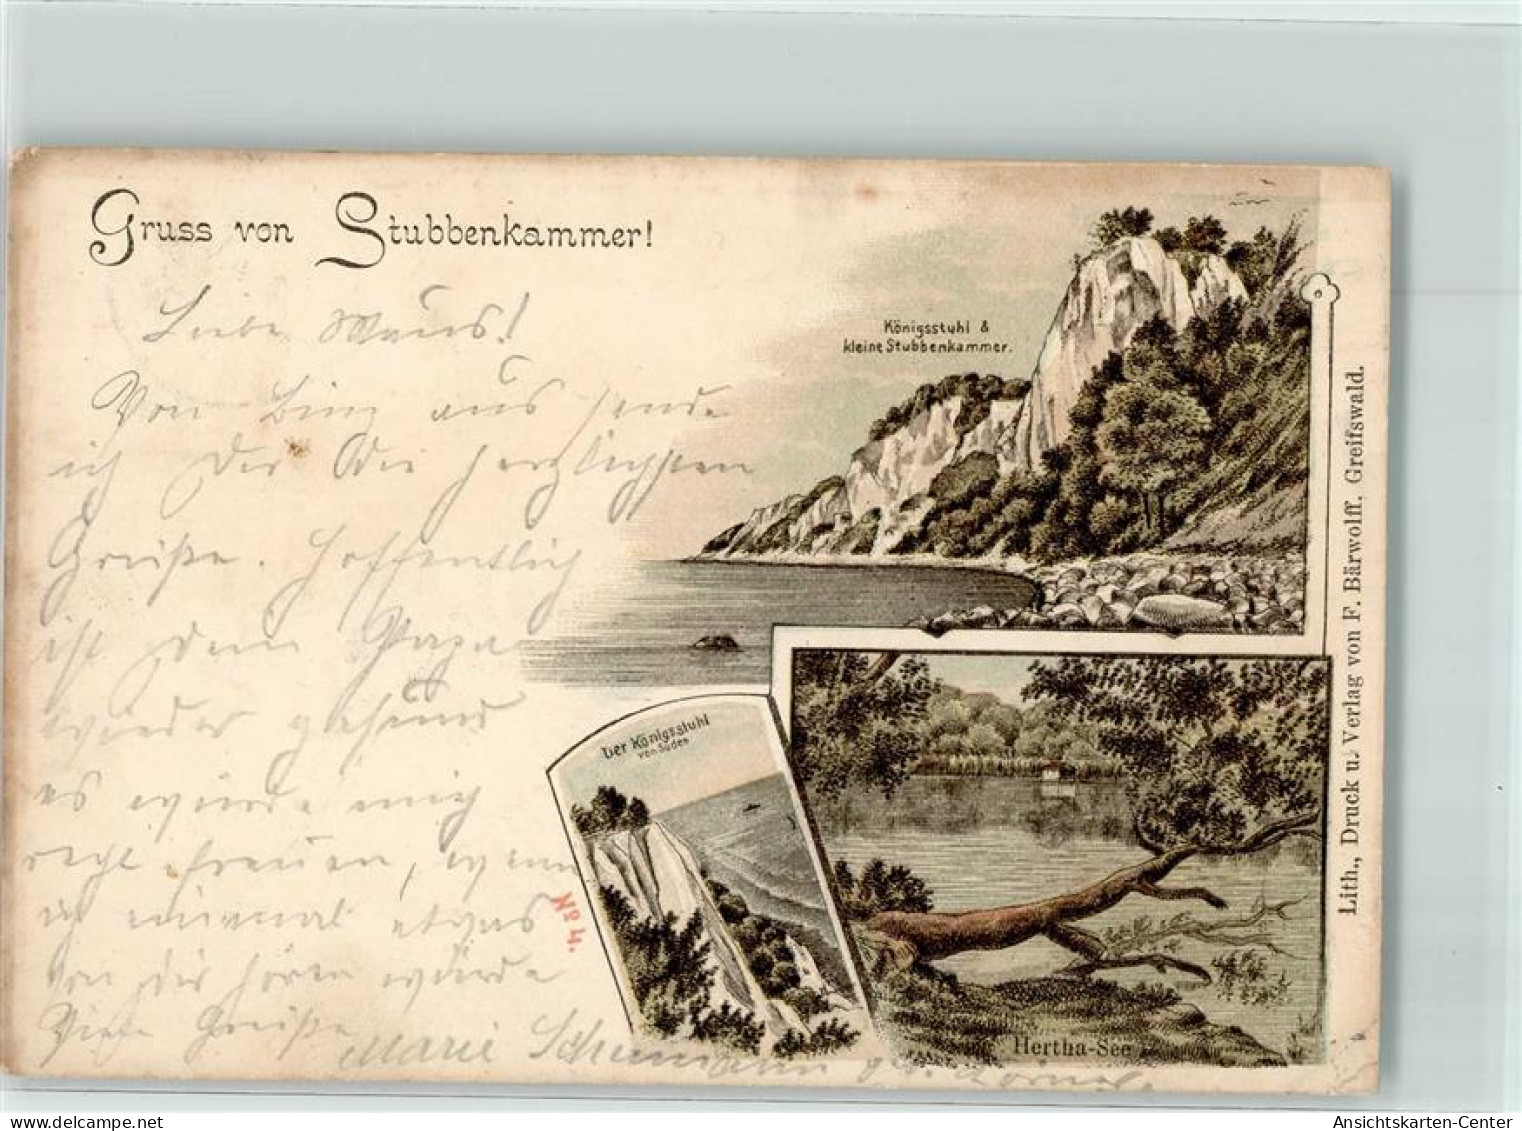 Gruss von Stubbenkammer!
Liebe Maus!
Von Binz aus sende
ich Dir die herzlichsten
Grüße. Hoffentlich
ist Dein Papa
wieder gesund
es würde mich
recht freuen, wenn
ich einmal etwas
von dir hören würde
Viele Grüße
Marie Schumann
Königsstuhl &
kleine Stubbenkammer.
Der Königsstuhl
von Süden
No 4.
Hertha-See
Lith., Druck u. Verlag von F. Bärwolff. Greifswald.
oldthing
Ansichtskarten-Center